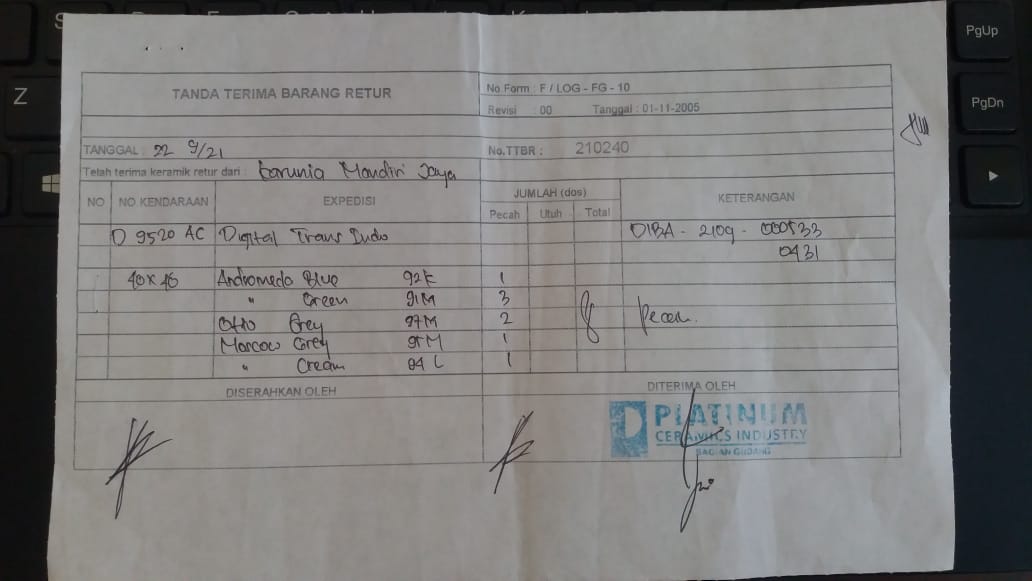 TANDA TERIMA BARANG RETUR
No.Form : F / LOG - FG - 10
Revisi : 00 Tanggal : 01-11-2005
TANGGAL : 22 9/21
No.TTBR : 210240
Telah terima keramik retur dari : Karunia Mandiri Jaya
NO NO KENDARAAN EXPEDISI JUMLAH (dos) KETERANGAN
Pecah Utuh Total
D 9520 AC Digital Trans Indo DIBA - 2109 - 000533
0431
40x40 Andromeda Blue 92K 1
" Green 91M 3
Otto Grey 97M 2 8 Pecah.
Moscow Grey 1
" Cream 04 L 1
DISERAHKAN OLEH DITERIMA OLEH
PLATINUM
CERAMICS INDUSTRY
BAGIAN GUDANG
Z
PgUp
PgDn